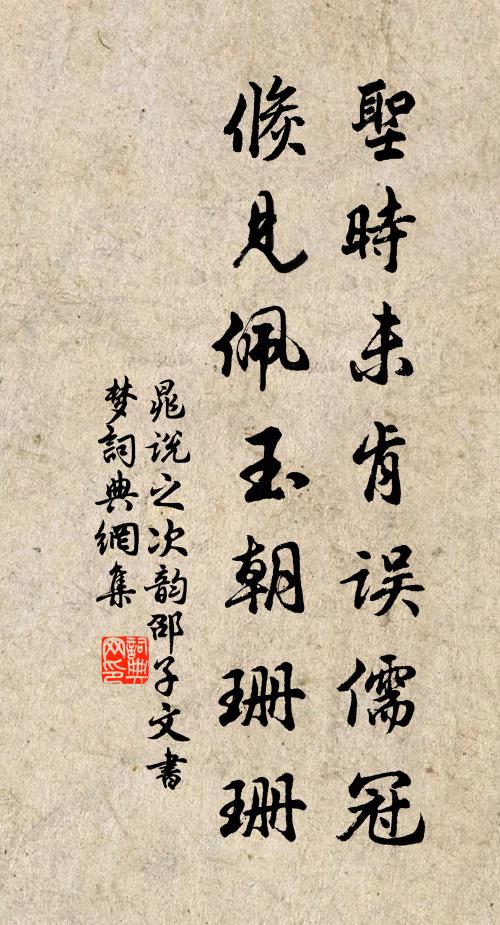 聖時未肯误儒冠
倏見佩玉朝珊珊
晁说之次韵邵子文書
梦詞典網集
詞典网印